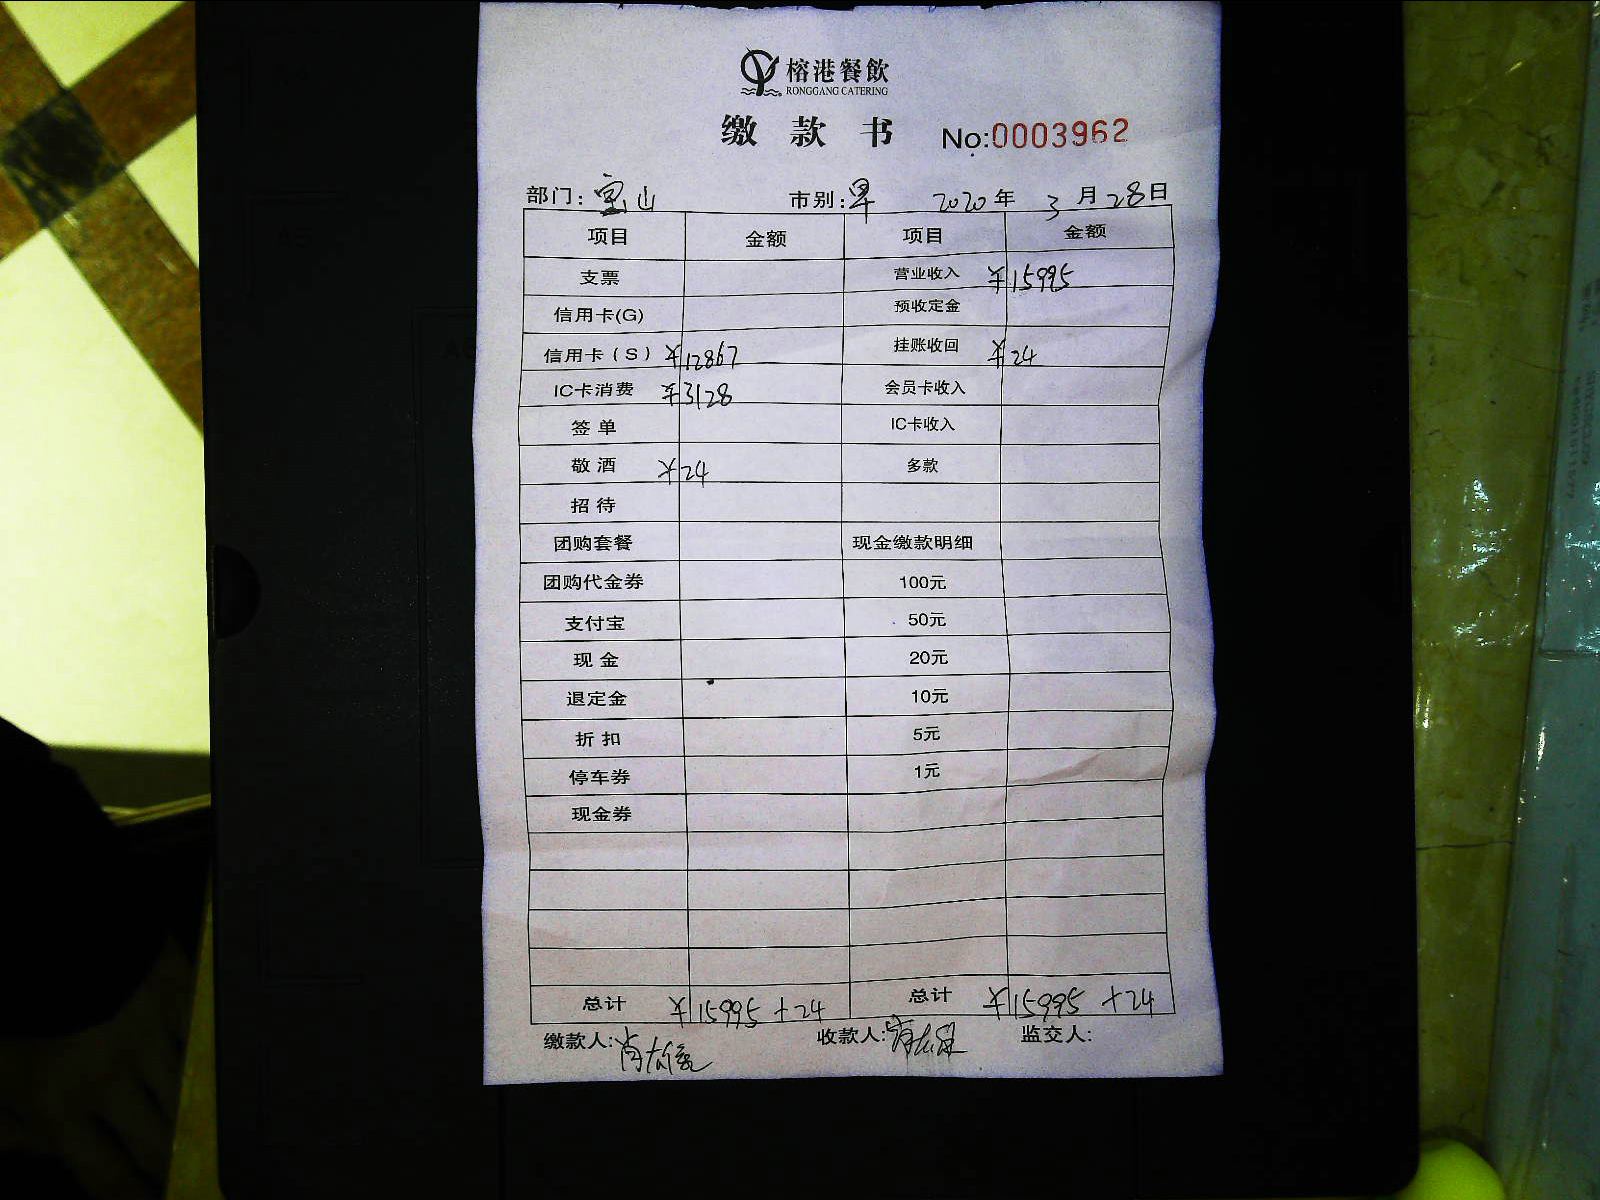 榕港餐飲
RONGGANG CATERING
缴款书 No:0003962
部门:宝山 市别:早 2020年3月28日
项目 金额 项目 金额
支票 营业收入 ¥15995
信用卡(G) 预收定金
信用卡(S) ¥12867 挂账收回 ¥24
IC卡消费 ¥3128 会员卡收入
签单 IC卡收入
敬酒 ¥24 多款
招待
团购套餐 现金缴款明细
团购代金券 100元
支付宝 50元
现金 20元
退定金 10元
折扣 5元
停车券 1元
现金券
总计 ¥15995+24 总计 ¥15995+24
缴款人: 收款人: 监交人: